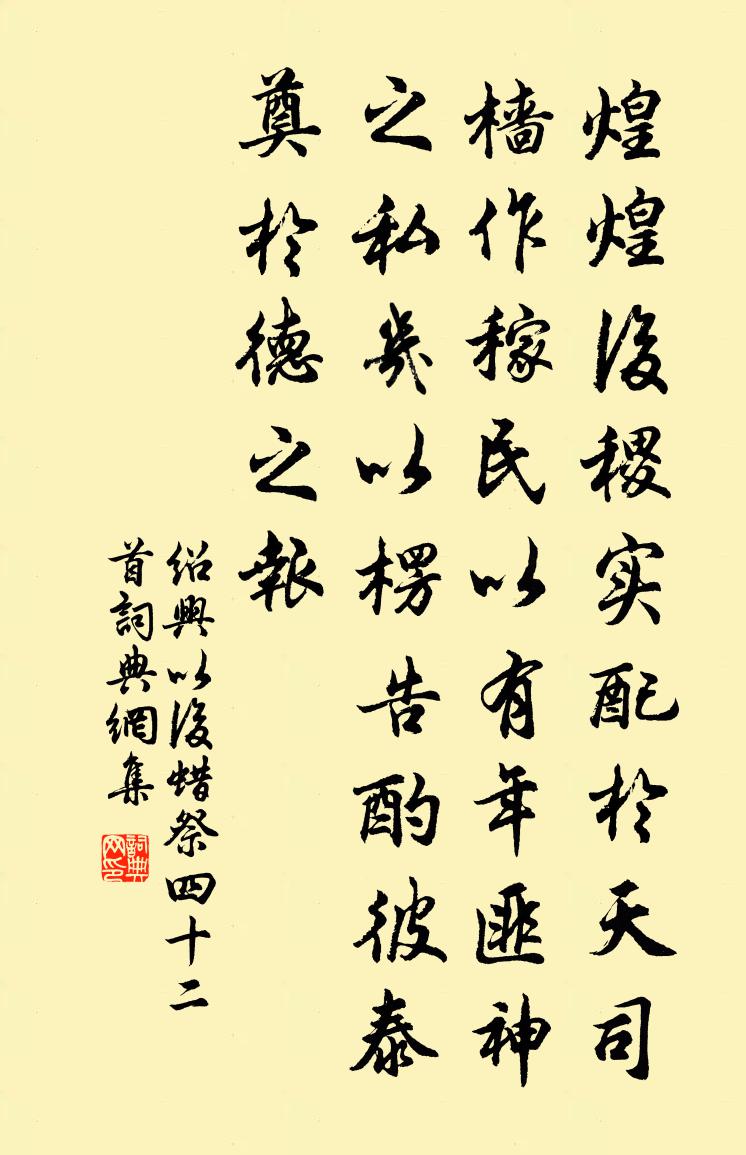 煌煌後稷实配於天司
檣作稼民以有年匪神
之私歲以楞告酌彼泰
奠於德之報
紹興以後蜡祭四十二
首詞典網集
詞典
网印